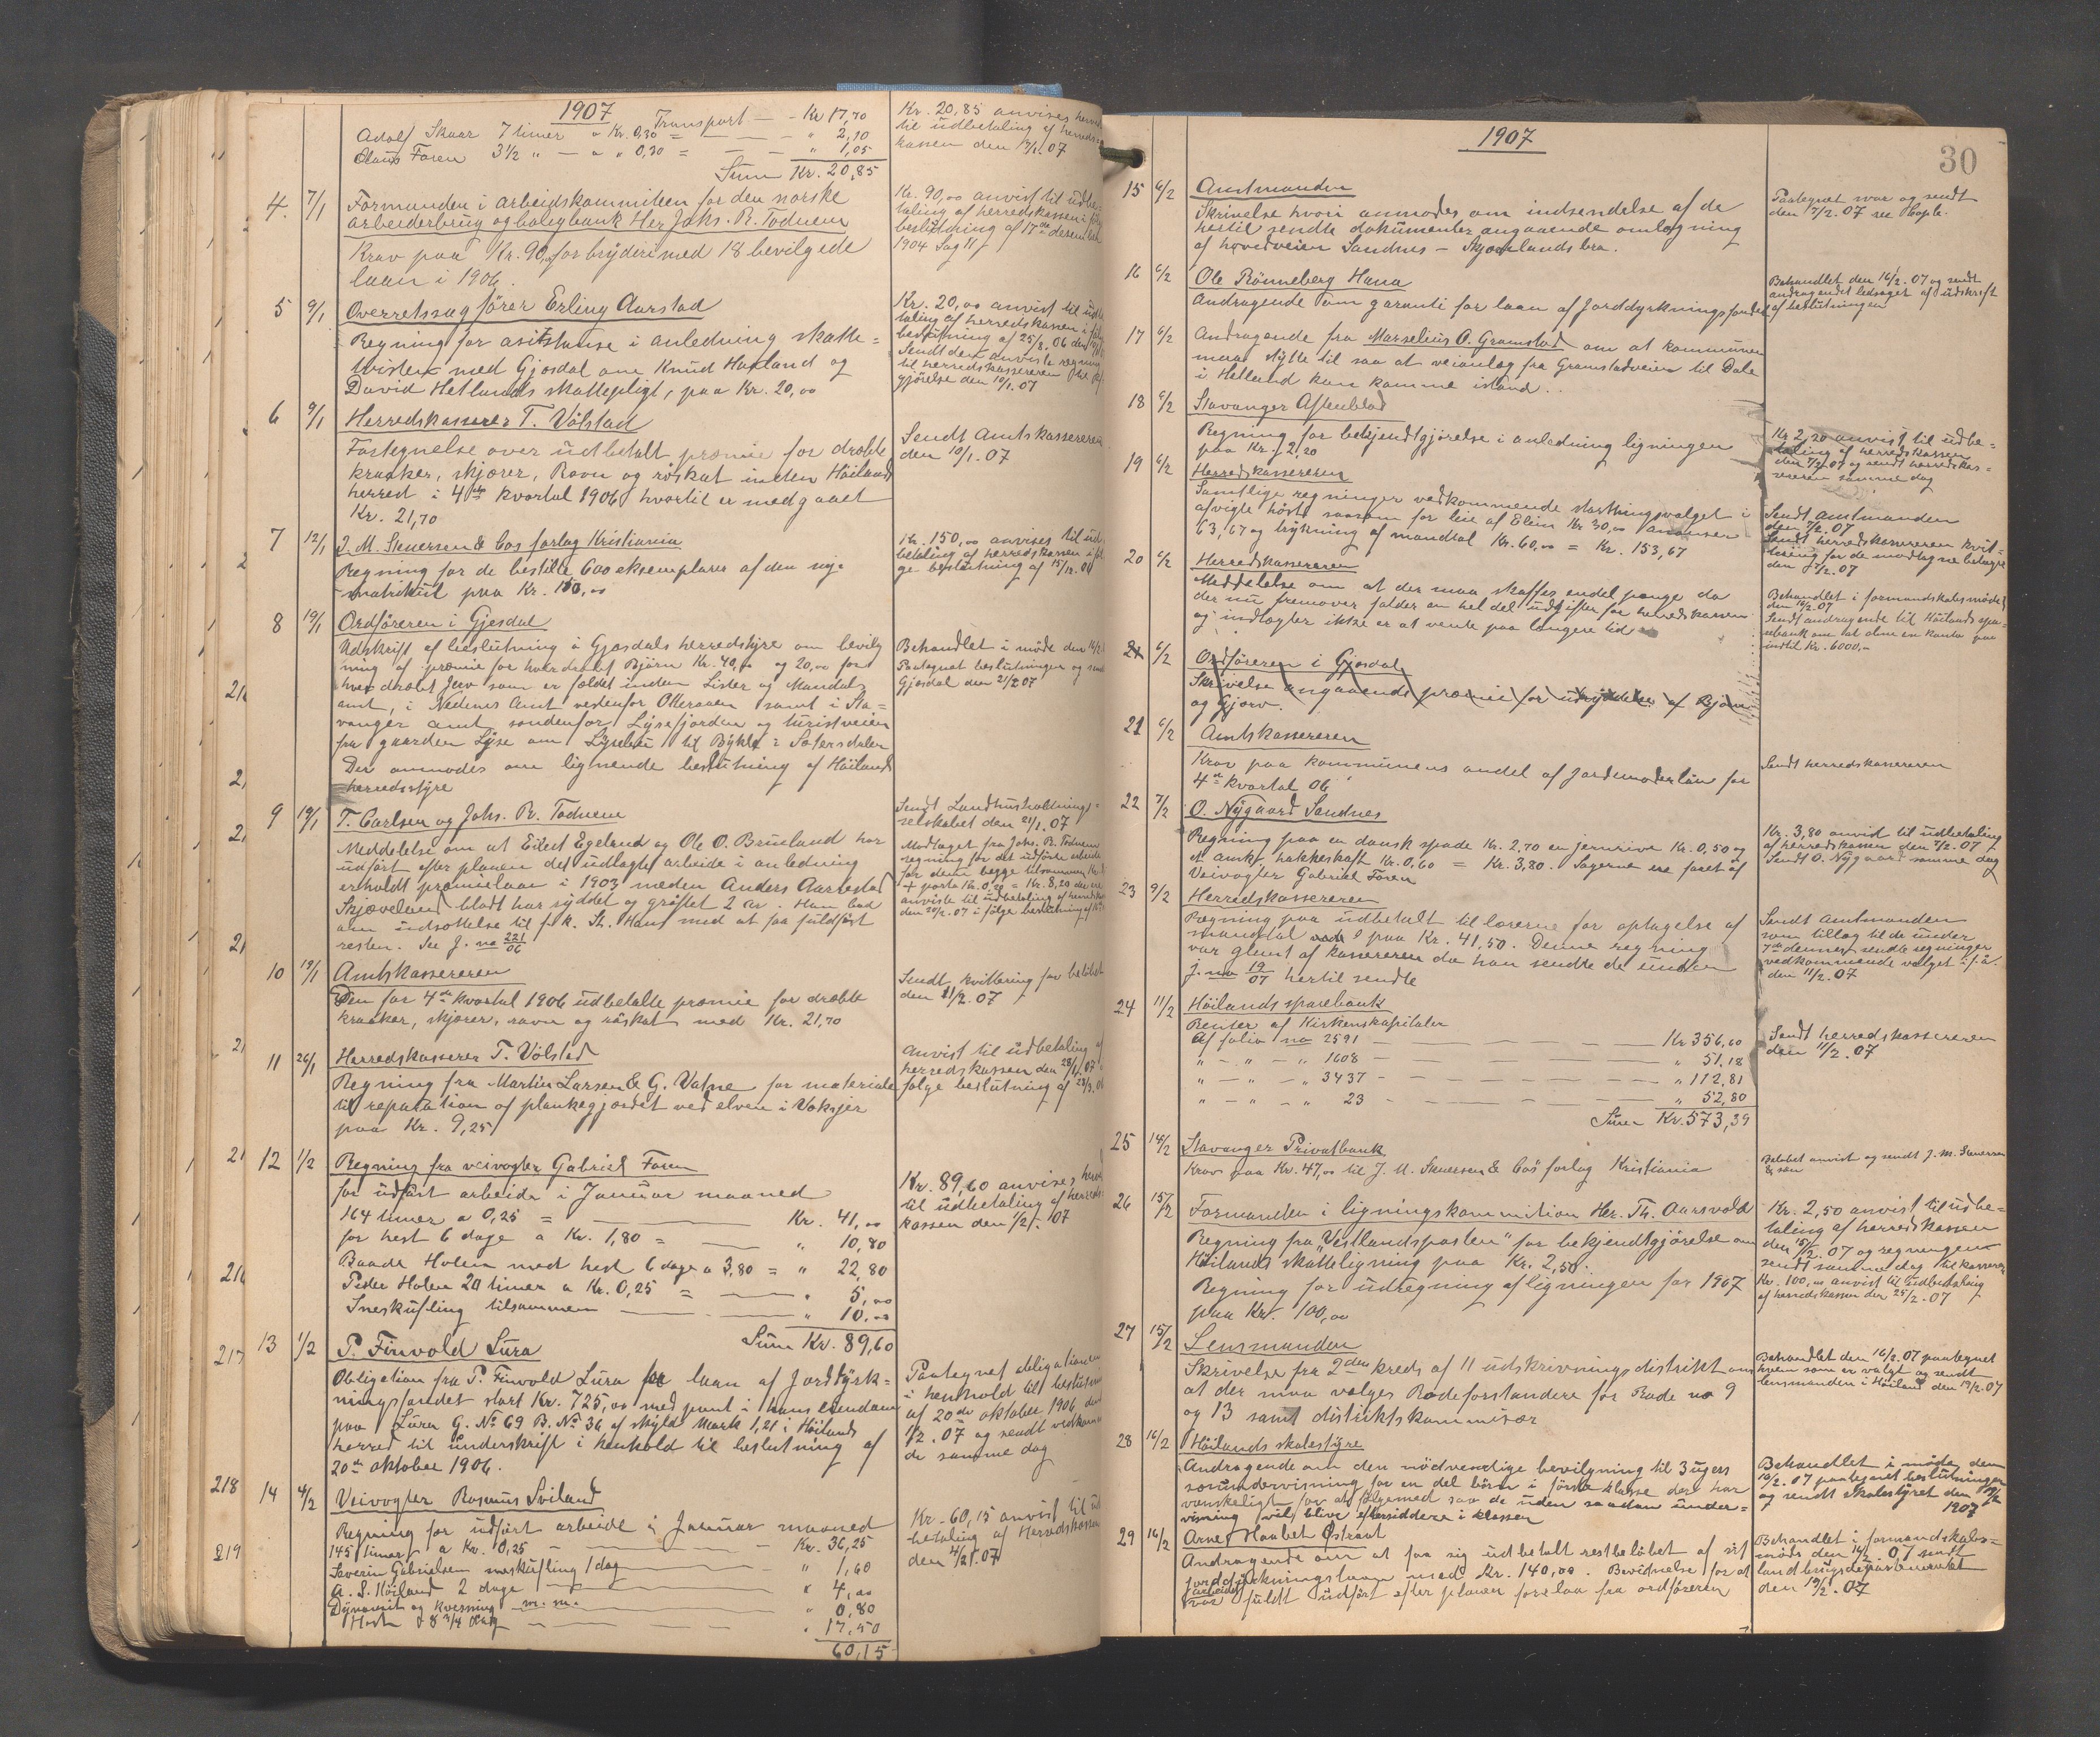 1907
Transport — - Kr 17,70
Adolf Skaar 7 timer a Kr. 0,30 = — " 2,10
Claus Foren 3½ " — a " 0,30 = — " 1,05
Sum Kr. 20,85
Kr. 20,85 anvises
til udbetaling af herreds
kassen den 07
4. 7/1 Formanden i arbeidskommiteen for den norske
arbeiderbrug og boligbank Her Johs. R. Todnem
Krav paa Kr. 90,00 for bryderi med 18 bevilgede
laan i 1906.
Kr. 90,00 anvist til udbe-
taling af herredskassen i
beslutning af 17de desember
1904 Sag 11
5 9/1 Overretssagfører Erling Aarstad
Regning for asistanse i anledning skatte=
tvisten med Gjesdal om Knud Hauland og
David Hetlands skattepligt, paa Kr. 20,00
Kr. 20,00 anvist til
taling af herredskassen i
beslutning af 25/8. 06 den
Sendt den anviste regning
til herredskassereren
gjörelse den 10/1. 07
6 9/1 Herredskasserer T. Völstad
Fortegnelse over udbetalt præmie for dræbte
kraaker, skjærer, Ravn og röskat inden Höilands
herred i 4de kvartal 1906 hvortil er medgaaet
Kr. 21,70
Sendt Amtskassereren
den 10/1. 07
7 12/1 J. M. Stenersen & Cos forlag Kristiania
Regning for de bestilte 600 eksemplarer af den nye
matrikul paa Kr. 150,00
Kr. 150,00 anvises til
betaling af herredskassen i
ge beslutning af 15/12. 06
8 19/1 Ordföreren i Gjesdal
Udskrift af beslutning i Gjesdals herredstyre om bevilg
ning af præmie for hver dræbt Björn Kr. 40,00 og 20,00 for
hver dræbt Jerv som er fældet inden Lister og Mandals
amt, i Nedenes Amt vestenfor Otteraaen samt i Sta=
vanger amt söndenfor Lysefjorden og turistveien
fra gaarden Lyse om Lyseheien til Bykle i Sætersdalen
Der anmodes om lignende beslutning af Höilands
herredsstyre
Behandlet i möde den
Paategnet beslutningen og sendt
Gjesdal den 21/2 07
9 19/1 T. Carlsen og Johs. R. Todnem
Meddelelse om at Eilert Egeland og Ole O. Brueland har
udfört efter planen det udlagte arbeide i anledning
erholdt præmielaan i 1903 meden Anders Aarestad
Skjæveland blodt har ryddet og gröftet 2 ar. Han bad
om udsættelse til f. k. St. Hans med at faa fuldfört
resten. See J. no 221/06
Sendt Landhusholdnings=
selskabet den 21/1. 07
Modtaget fra Johs. R. Todnem
regning for det udförte arbeide
for dem begge tilsammen Kr.
+ porto Kr. 0,20 = Kr. 8,20
anviste til udbetaling af herredsk
den 20/2. 07 i følge beslutning af
10 19/1 Amtskassereren
Den for 4de kvartal 1906 udbetalte præmie for dræbte
kraaker, skjærer, ravn og röskat med Kr. 21,70
Sendt kvittering for belöbet
den 11/2. 07
11 26/1 Herredskasserer T. Völstad
Regning fra Martin Larsen & G. Vatne for materiale
til reparation af plankegjærdet ved elven i Voksjer
paa Kr. 9,25
Anvist til udbetaling af
herredskassen den 28/1. 07
følge beslutning af
12 1/2 Regning fra veivogter Gabriel Foren
for udfört arbeide i Januar maaned
164 timer a 0,25 = — Kr. 41,00
for hest 6 dage a Kr. 1,80 = — " 10,80
Baarde Holen med hest 6 dage a 3,80 = " 22,80
Peder Holen 20 timer a Kr. 0,25 = — " 5,00
Sneskufling tilsammen — " 10,00
Sum Kr. 89,60
Kr. 89,60 anvises
til udbetaling af herreds
kassen den 1/2. 07
13 1/2 P. Finvold Lura
Obligation fra P. Finvold Lura for laan af Jorddyrk=
ningsfondet stort Kr. 725,00 med pant i hans eiendom
paa Lura G. No 69 B. No 36 af skyld Mark 1,21 i Höilands
herred til underskrift i henhold til beslutning af
20de oktober 1906.
Paategnet obligationen
i henhold til beslutning
af 20de oktober 1906 den
1/2. 07 og sendt vedkommen
de samme dag
14 4/2 Veivogter Rasmus Sviland
Regning for udfört arbeide i Januar maaned
145 timer a Kr. 0,25 — Kr. 36,25
Severin Gabrielsen sneskufling 1 dag — " 1,60
A. S. Höiland 2 dage — " 4,00
Dynamit og kvesning m. m. — " 0,80
Hest 8 3/4 dag — " 17,50
60,15
Kr. 60,15 anvist til ud
betaling af Herredskassen
den 4/2. 07
217
218
219
1907
30
15 6/2 Amtmanden
Skrivelse hvori anmodes om indsendelse af de
hertil sendte dokumenter angaaende omlægning
af hovedveien Sandnes — Skjævelandsbro.
Paategnet svar og sendt
den 7/2. 07 see Copb.
16 6/2 Ole Rönneberg Hana
Andragende om garanti for laan af Jorddyrkningsfondet
Behandlet den 16/2. 07 og sendt
andragendet ledsaget af udskrift
af beslutningen
17 6/2 Andragende fra Marselius O. Gramstad om at kommunen
maa skytte til saa at veianlæg fra Gramstadveien til Dale
i Hetland kan komme istand.
18 6/2 Stavanger Aftenblad
Regning for bekjendtgjörelse i anledning ligningen
paa Kr. 2,20
Kr 2,20 anvist til udbe=
taling af herredskassen
den 7/2. 07 og sendt herredskas=
sereren samme dag
19 6/2 Herredskassereren
Samtlige regninger vedkommende stortingsvalget i
afvigte höst saasom for leie af Elim Kr 30,00 anonser
63,67 og trykning af mandtal Kr. 60,00 = Kr. 153,67
Sendt Amtmanden
den 7/2. 07
Sendt herredskassereren kvit=
tering for de modtagne belöpe
den 07
20 6/2 Herredskassereren
Meddelelse om at der maa skaffes endel penge da
der nu fremover falder en hel del udgifter for herredskassen
og indtægter ikke er at vente paa længere tid
Behandlet i formandskabsmöde
den 16/2. 07
Sendt andragende til Höilands spa=
rebank om lot dem en konto paa
indtil Kr. 6000,-
21 6/2 Ordföreren i Gjesdal
Skrivelse angaaende præmie for udryddelse af Björn
og Gjerv.
21 6/2 Amtskassereren
Krav paa kommunens andel af Jordmoderlön for
4de kvartal 06
Sendt herredskassereren
22 7/2 O. Nygaard Sandnes
Regning paa en dansk spade Kr. 2,70 en jernrive Kr. 0,50 og
et amk. hakkeskaft Kr. 0,60 = Kr. 3,80. Sagerne ere faaet af
Veivogter Gabriel Foren
Kr. 3,80 anvist til udbetaling
af herredskassen den 7/2. 07
Sendt O. Nygaard samme dag
23 9/2 Herredskassereren
Regning paa udbetalt til lærerne for optagelse af
mandtal paa Kr. 41,50. Denne regning
var glemt af kassereren da han sendte de under
J. no 19/07 hertil sendte
Sendt Amtmanden
som tillæg til de under
7de dennes sendte regninger
vedkommende valget i f. å.
den 11/2. 07
24 11/2 Höilands sparebank
Renter af Kirkenskapitaler
Af folio no 2591 — Kr 356,60
" — " — " 1608 — " 51,18
" — " — " 3437 — " 112,81
" — " — " 23 — " 52,80
Sum Kr. 573,39
Sendt herredskassereren
den 11/2. 07
25 14/2 Stavanger Privatbank
Krav paa Kr. 47,00 til J. M. Stenersen & Cos forlag Kristiania
Belöbet anvist og sendt J. M. Stenersen
26 15/2 Formanden i ligningskommision Her. Th. Aarsvold
Regning fra "Vestlandsposten" for bekjendtgjörelse om
Höilands skatteligning paa Kr. 2,50.
Regning for udregning af ligningen for 1907
paa Kr. 100,00
Kr. 2,50 anvist til udbe=
taling af herredskassen
den 15/2. 07 og regningen
sendt samme dag til kassereren
Kr. 100,00 anvist til udbetaling
af herredskassen den 25/2. 07
27 15/2 Lensmanden
Skrivelse fra 2den kreds af 11 udskrivningsdistrikt om
at der maa vælges Rodeforstandere for Rode no 9
og 13 samt distriktskommisær
Behandlet den 16/2. 07 paategnet
hvem som er valgt og sendt
lensmanden i Höiland den 19/2. 07
28 16/2 Höilands skolestyre
Andragende om den nödvendige bevilgning til 3 ugers
særundervisning for en del börn i förste klasse der har
vanskeligt for at fölge med saa de uden saadan under=
visning vil blive eftersiddere i klassen
Behandlet i möde den
16/2. 07 paategnet beslutningen
og sendt skolestyret den 19/2
1907
29 16/2 Arne Haabet Östraat
Andragende om at faa sig udbetalt restbelöbet af sit
jorddyrkningslaan med Kr. 140,00. Bevidnelse for at
arbeidet var fuldt udfört efter planen forelaa fra ordföreren
Behandlet i formandskabs=
möde den 16/2. 07 sendt
landbrugsdepartementet
den 19/2. 07